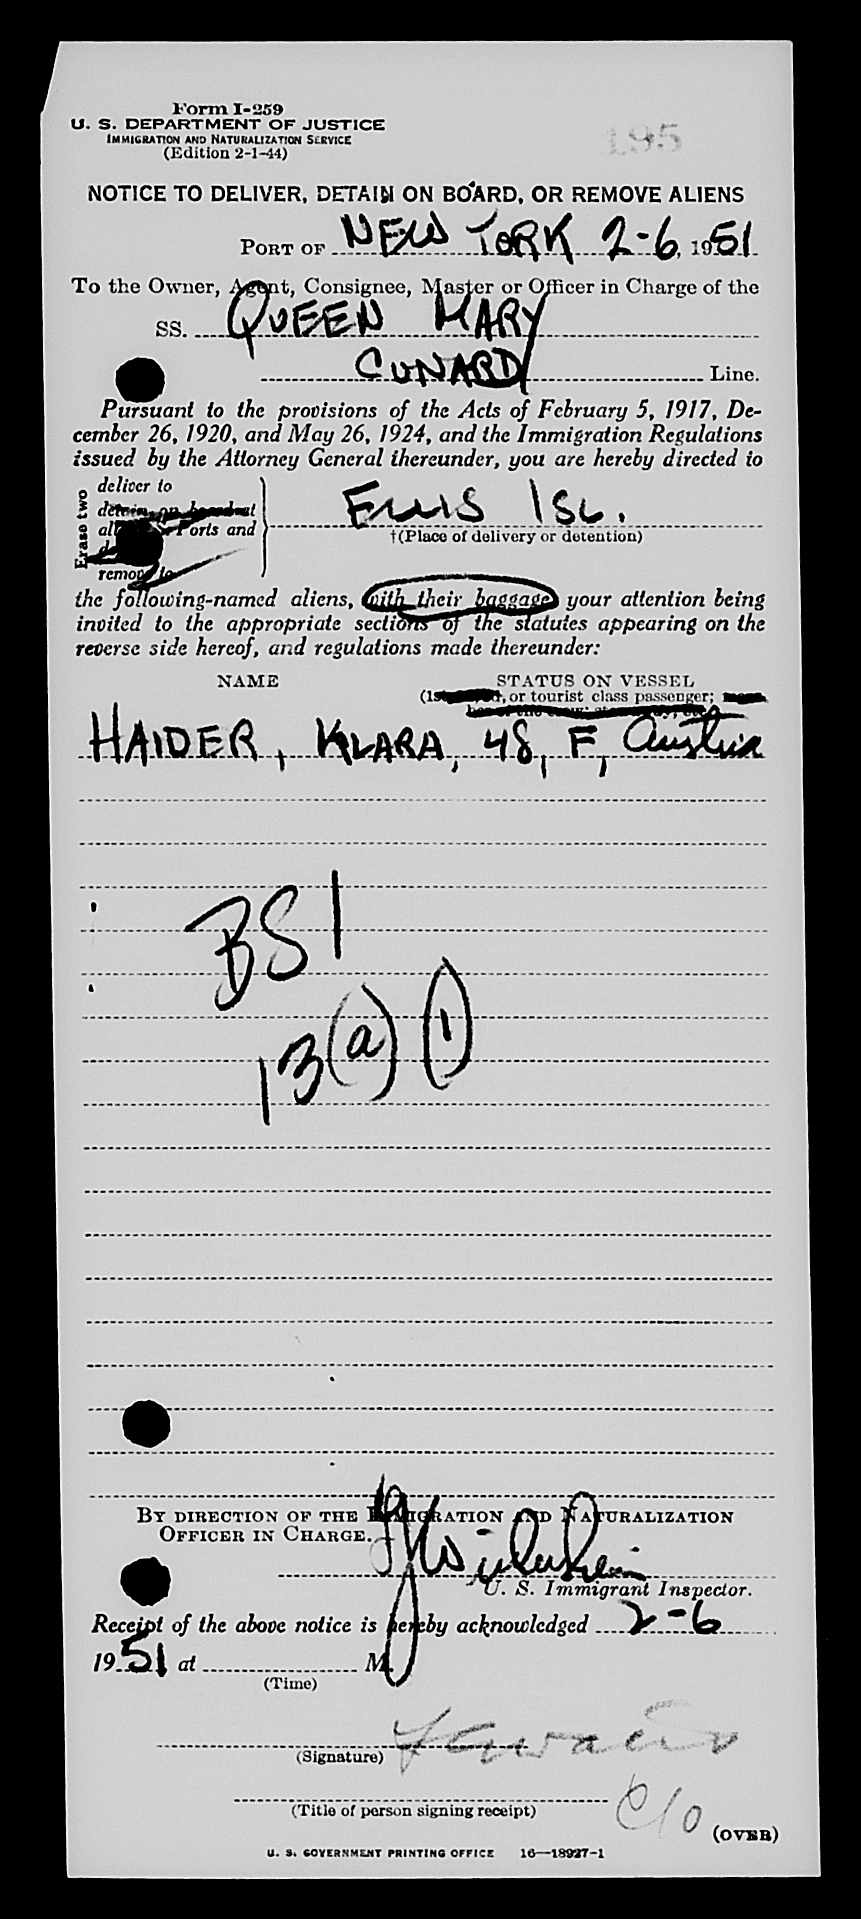 Form I-259
U. S. DEPARTMENT OF JUSTICE
IMMIGRATION AND NATURALIZATION SERVICE
(Edition 2-1-44)
195
NOTICE TO DELIVER, DETAIN ON BOARD, OR REMOVE ALIENS
PORT OF NEW YORK 2-6, 1951
To the Owner, Agent, Consignee, Master or Officer in Charge of the
SS. QUEEN MARY
CUNARD Line.
Pursuant to the provisions of the Acts of February 5, 1917, De-
cember 26, 1920, and May 26, 1924, and the Immigration Regulations
issued by the Attorney General thereunder, you are hereby directed to
Erase two
deliver to
detain on board at
all Ports and
remove to
ELLIS ISL.
†(Place of delivery or detention)
the following-named aliens, with their baggage, your attention being
invited to the appropriate sections of the statutes appearing on the
reverse side hereof, and regulations made thereunder:
NAME STATUS ON VESSEL
or tourist class passenger;
HAIDER, KLARA, 48, F, Austria
BSI
13(a)(1)
BY DIRECTION OF THE IMMIGRATION AND NATURALIZATION
OFFICER IN CHARGE.
U. S. Immigrant Inspector.
Receipt of the above notice is hereby acknowledged 2-6
1951 at M.
(Time)
(Signature)
(Title of person signing receipt)
C/O
(OVER)
U. S. GOVERNMENT PRINTING OFFICE 16—18927-1